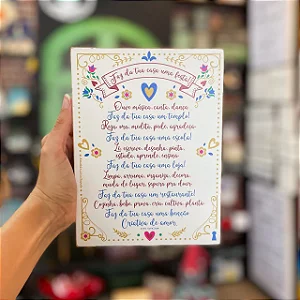 Faz da tua casa uma festa!
Ouve música, canta, dança
Faz da tua casa um templo!
Reza, ora, medita, pede, agradece
Faz da tua casa uma escola!
Lê, escreve, desenha, pinta,
estuda, aprende, ensina
Faz da tua casa uma loja!
Limpa, arruma, organiza, decora,
muda de lugar, separa pra doar
Faz da tua casa um restaurante!
Cozinha, prova, cria, cultiva, planta
Faz da tua casa
Criativa de amor.